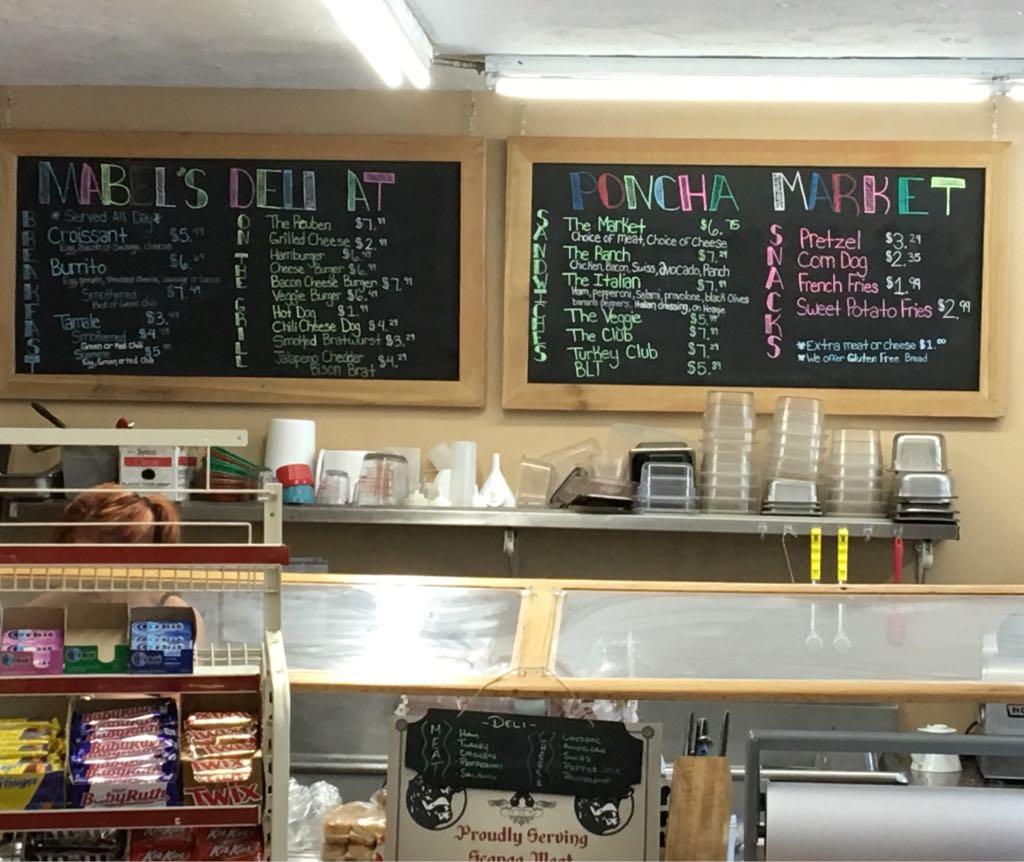 MABEL'S DELI AT
BREAKFAST
*Served All Day*
Croissant $5.
Egg, Bacon or Sausage, Cheese
Burrito $6.
Smothered $7.
Tamale $3.
Smothered $4.
Green or Red Chili
$5
Egg, Green or Red Chili
ON THE GRILLE
The Reuben $7.
Grilled Cheese $2.
Hamburger $6.
Cheese Burger $6.
Bacon Cheese Burger $7.
Veggie Burger $6.
Hot Dog $1.
Chili Cheese Dog $4.
Smoked Bratwurst $3.29
Jalapeno Chedder $4.
Bison Brat
PONCHA MARKET
SANDWICHES
The Market $6.75
Choice of meat, Choice of Cheese
The Ranch $7.
Chicken, Bacon, Swiss, avocado, Ranch
The Italian $7.
Ham, pepperoni, Salami, provolone, black Olives
banana peppers, Italian dressing, on Hoagie
The Veggie $5.
The Club $7.
Turkey Club $7.
BLT $5.
SNACKS
Pretzel $3.29
Corn Dog $2.35
French Fries $1.99
Sweet Potato Fries $2.99
*Extra meat or cheese $1.00
*We offer Gluten Free Bread
Sysco
BabyRuth
BabyRuth
TWIX
KitKat
-DELI-
MEAT
Ham
Turkey
Chicken
Salami
CHEESE
American
Swiss
Pepper Jack
Proudly Serving